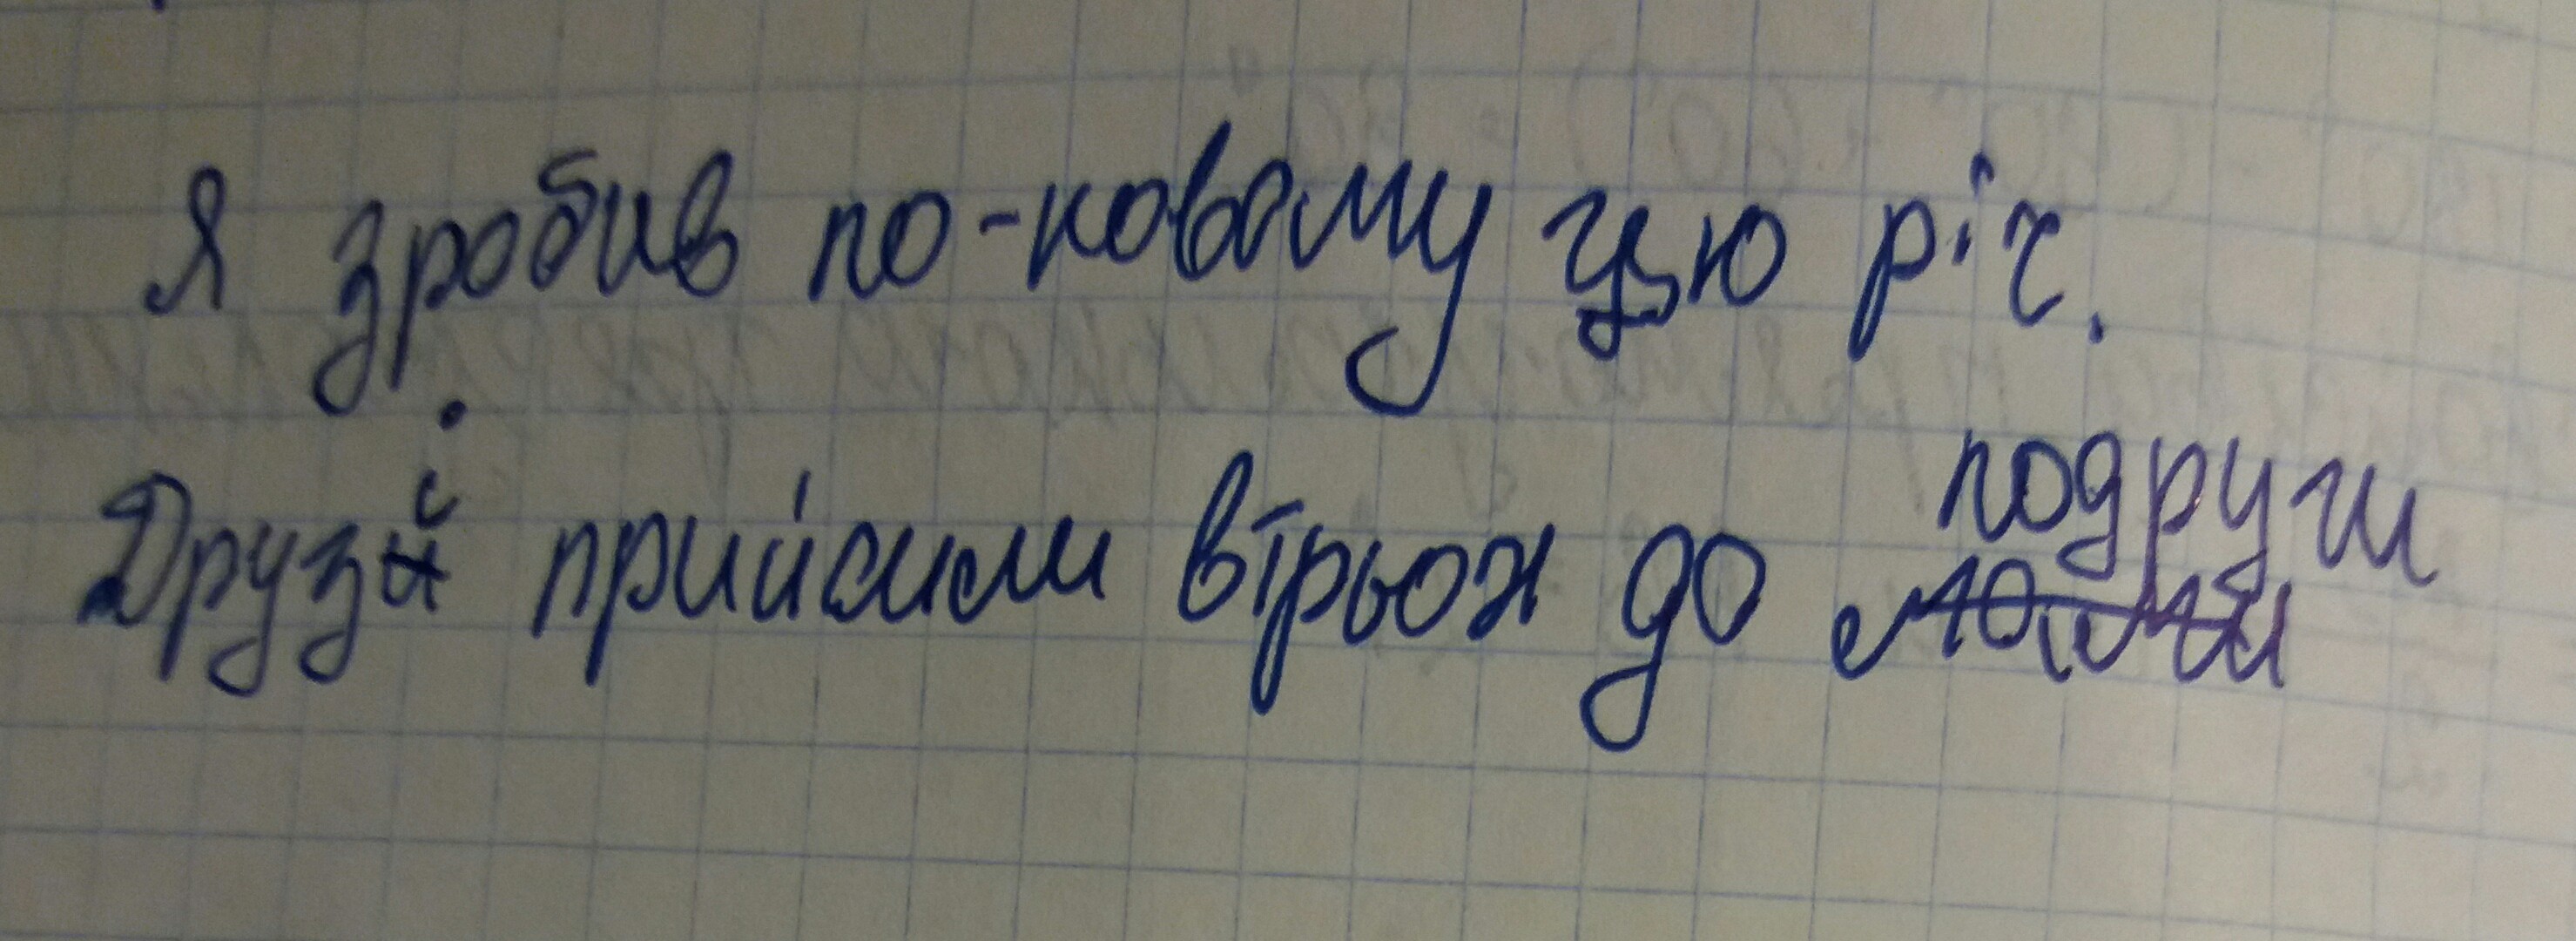 Я зробив по-новому цю річ.
Друзі прийшли втрьох до подруги